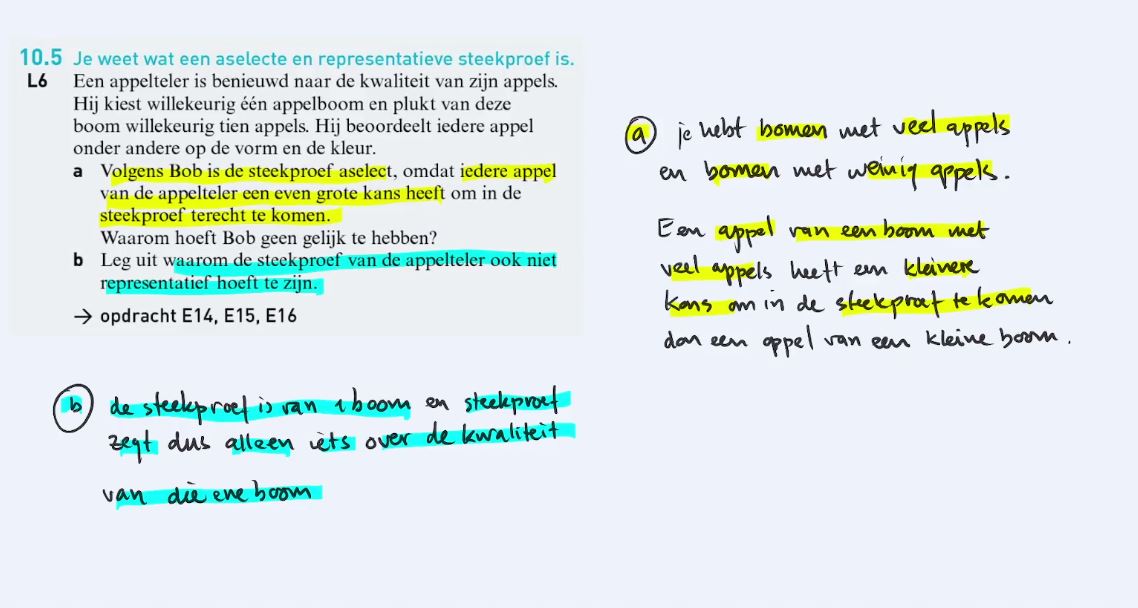 10.5 Je weet wat een aselecte en representatieve steekproef is.
L6 Een appelteler is benieuwd naar de kwaliteit van zijn appels.
Hij kiest willekeurig één appelboom en plukt van deze
boom willekeurig tien appels. Hij beoordeelt iedere appel
onder andere op de vorm en de kleur.
a Volgens Bob is de steekproef aselect, omdat iedere appel
van de appelteler een even grote kans heeft om in de
steekproef terecht te komen.
Waarom hoeft Bob geen gelijk te hebben?
b Leg uit waarom de steekproef van de appelteler ook niet
representatief hoeft te zijn.
→ opdracht E14, E15, E16
a je hebt bomen met veel appels
en bomen met weinig appels.
Een appel van een boom met
veel appels heeft een kleinere
kans om in de steekproef te komen
dan een appel van een kleine boom.
b de steekproef is van 1 boom en steekproef
zegt dus alleen iets over de kwaliteit
van die ene boom